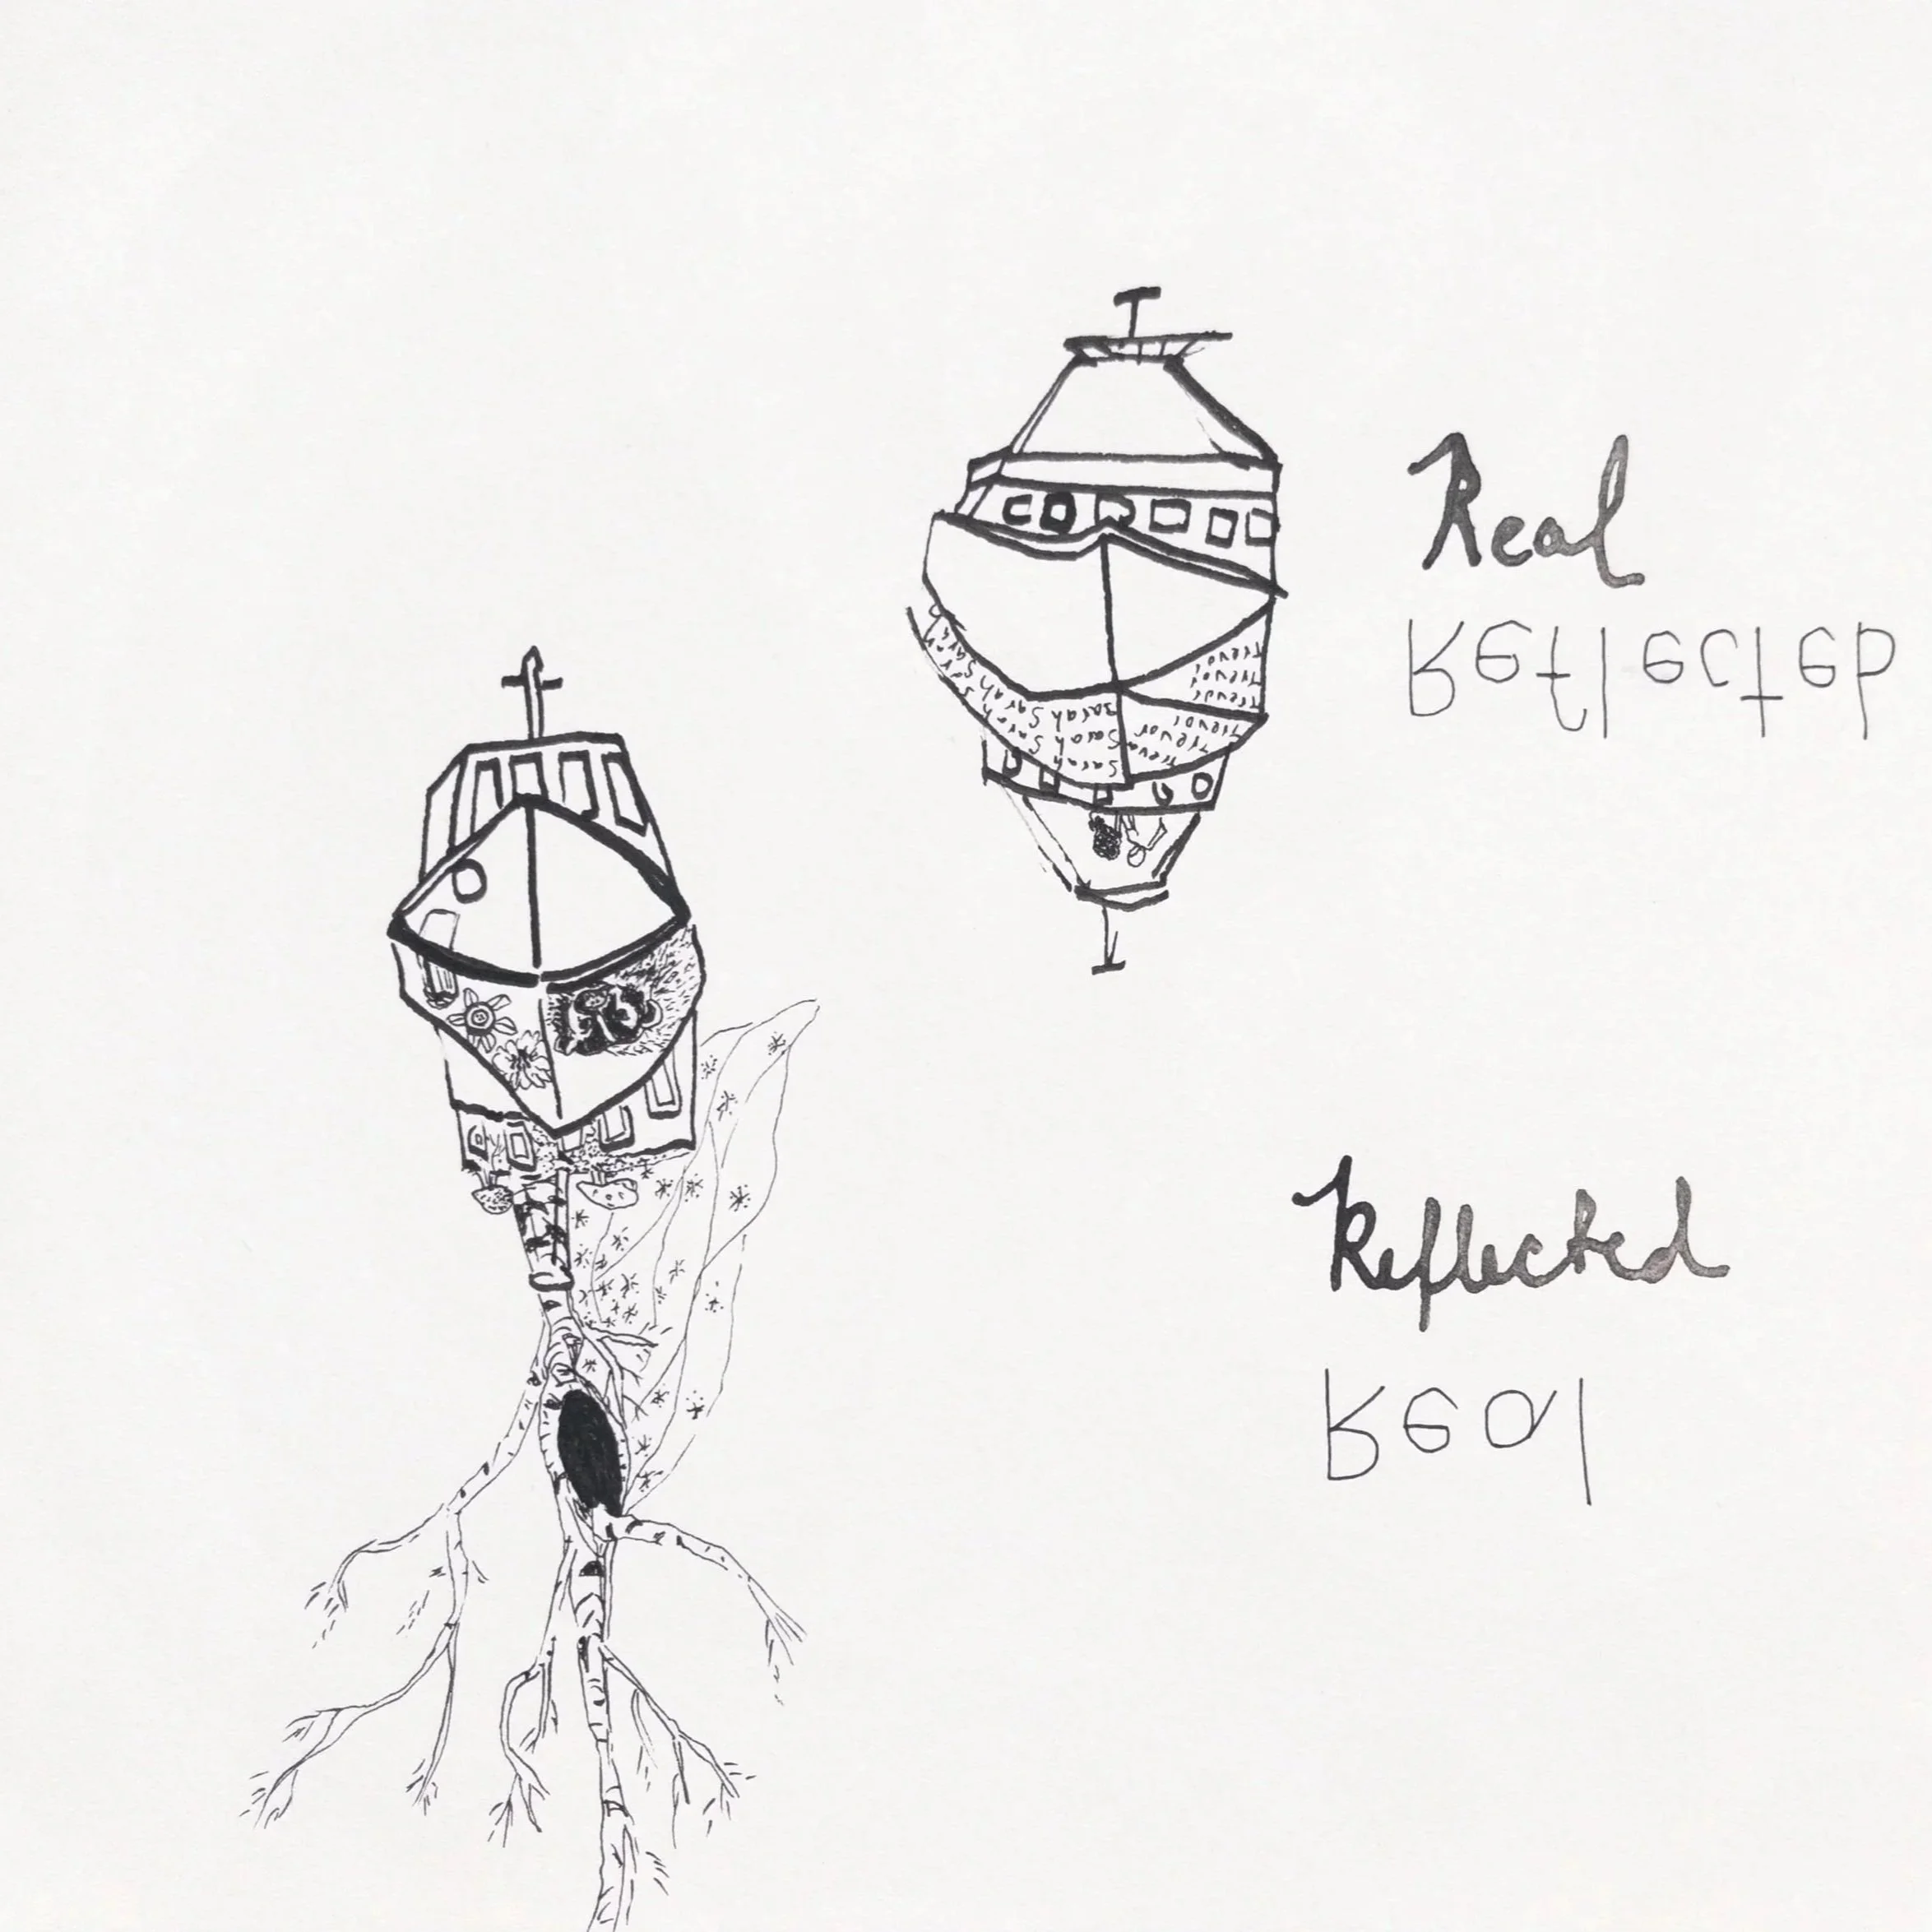 Real
Reflecteb
Trevor
Trevor
Trevor
Sarah Sarah Sarah
Sarah Sarah Trevor Trevor
Sarah Trevor Trevor
Reflected
Real